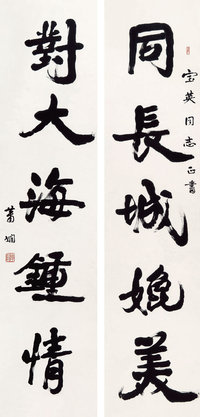 同長城媲美
宝英同志正書
對大海鍾情
萧娴